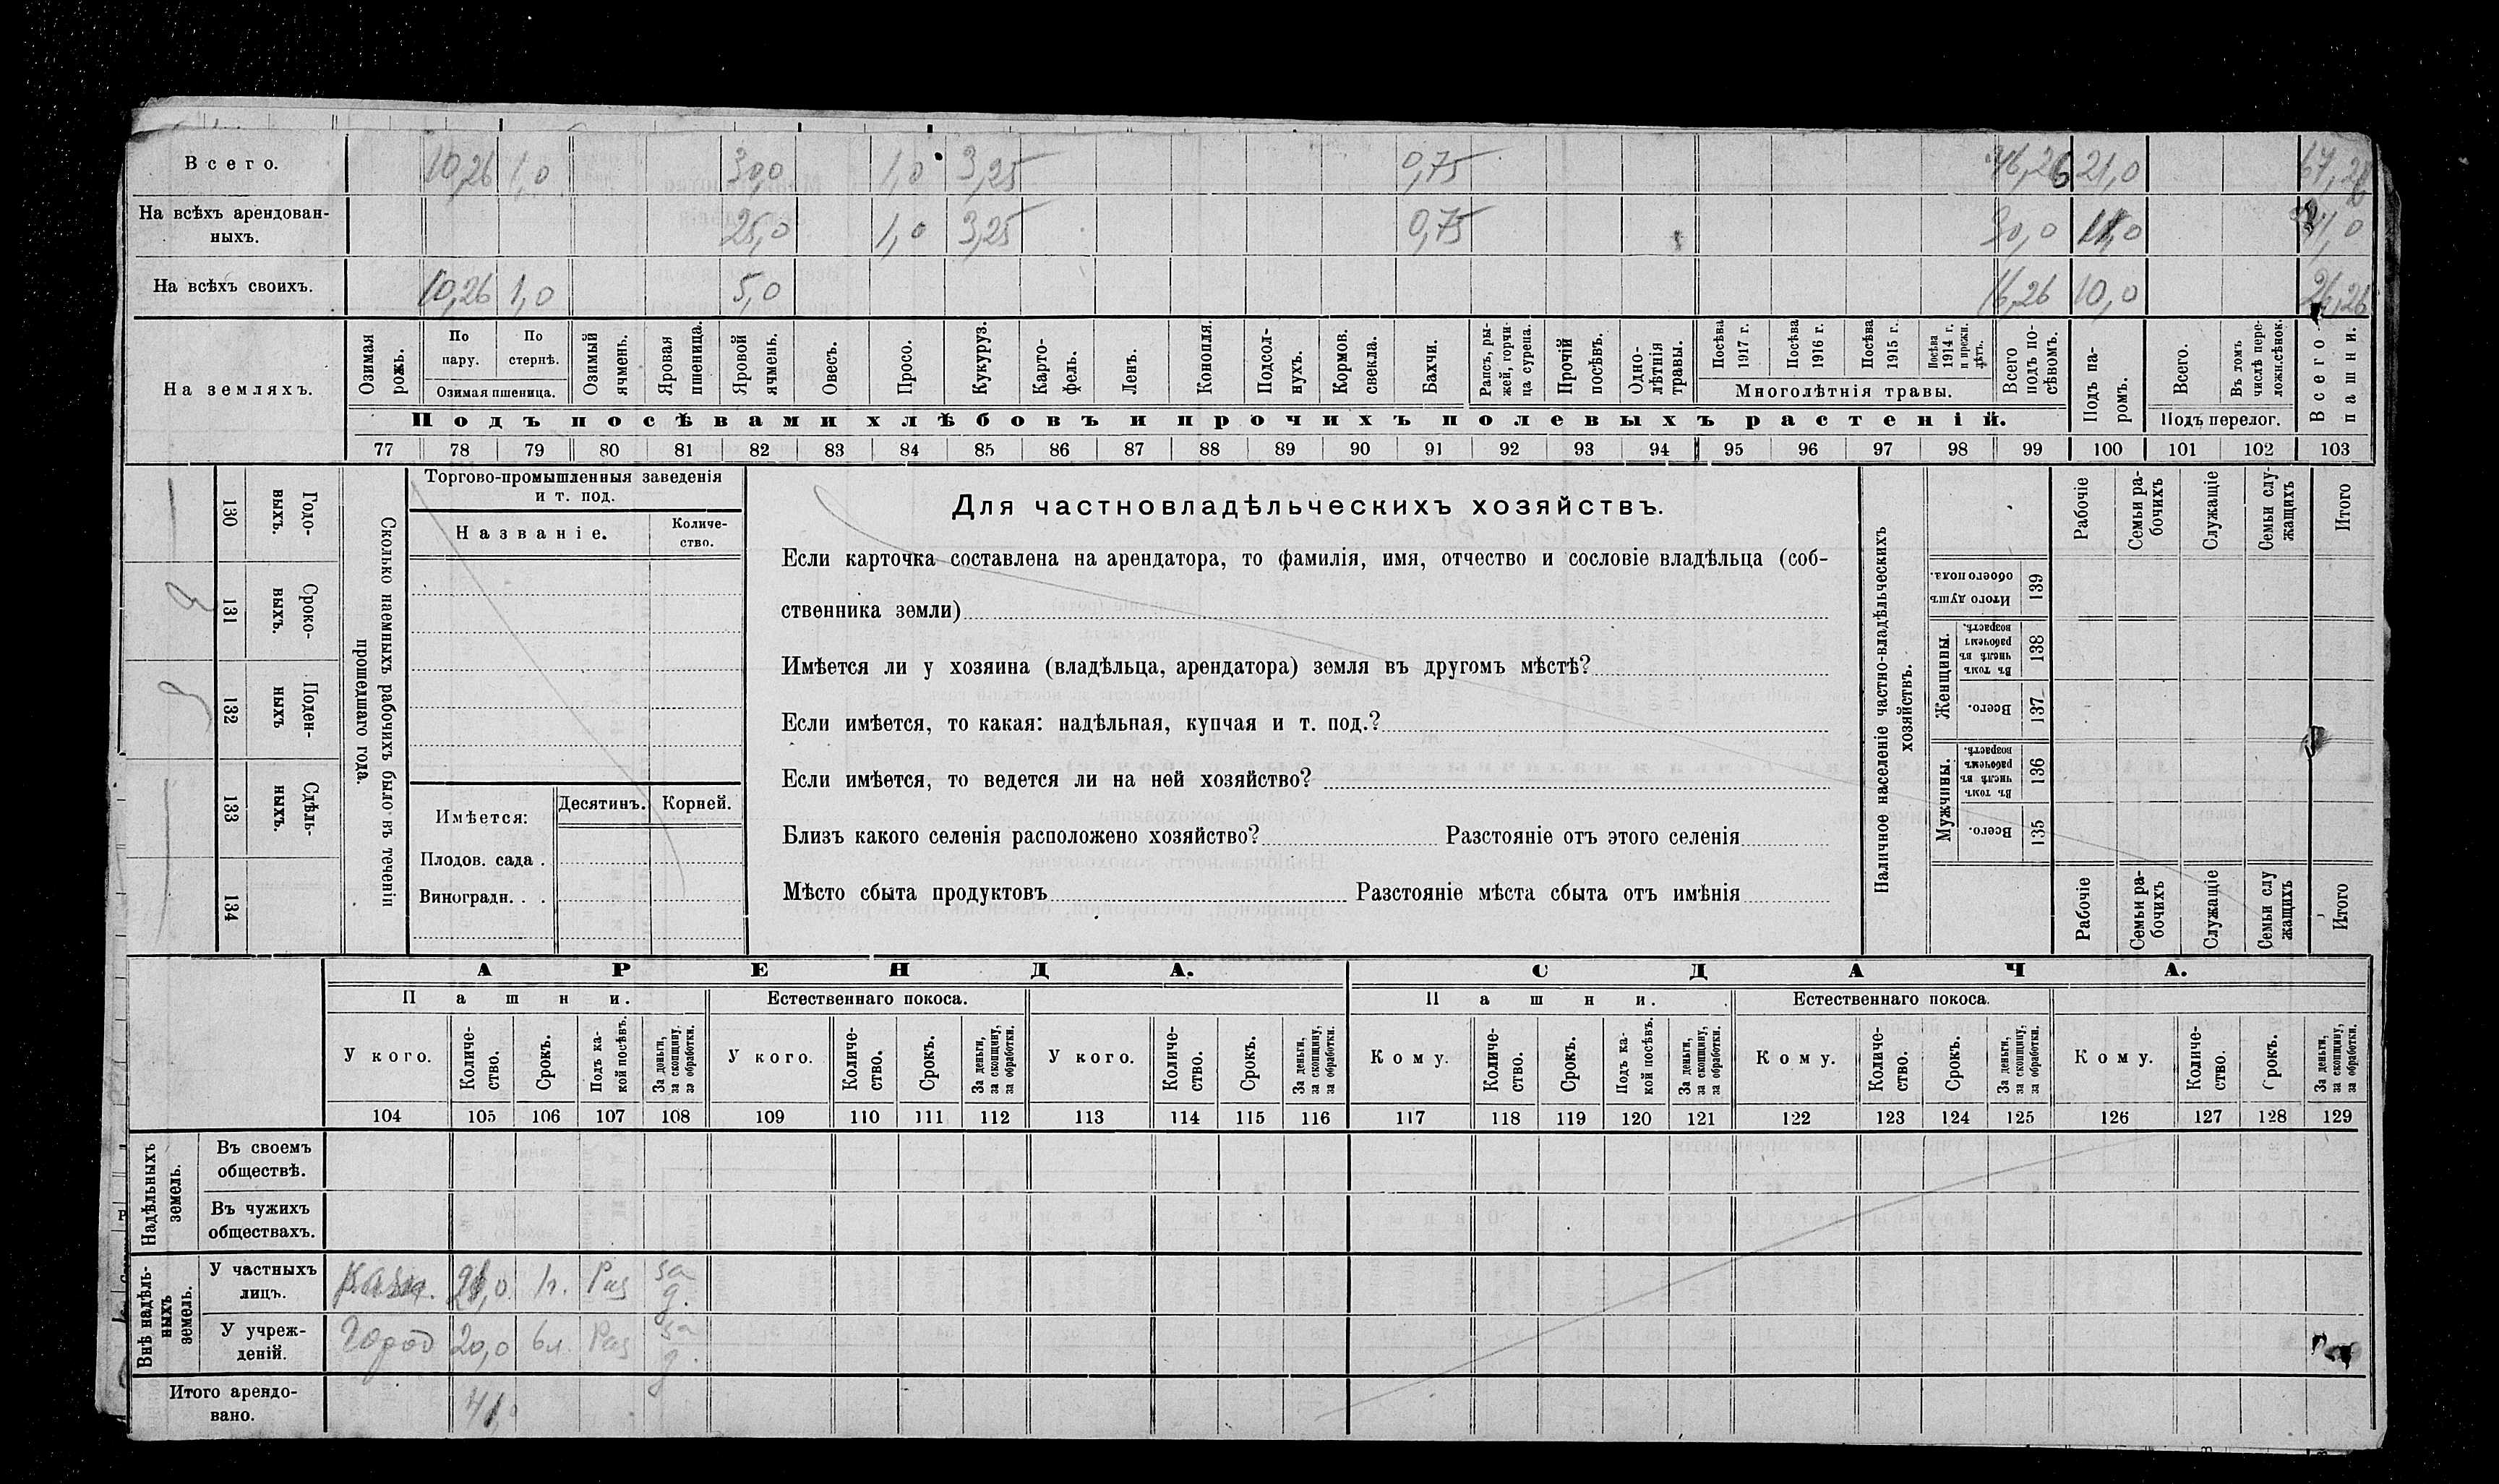 Всего. 10,26 1,0 30,0 1,0 3,25 0,75 46,26 21,0 67,26
На всѣхъ арендован-
ныхъ. 25,0 1,0 3,25 0,75 30,0 11,0 41,0
На всѣхъ своихъ. 10,26 1,0 5,0 16,26 10,0 26,26
На земляхъ.
Озимая рожь.
По пару.
По стернѣ.
Озимая пшеница.
Озимый ячмень.
Яровая пшеница.
Яровой ячмень.
Овесъ.
Просо.
Кукуруз.
Карто-
фель.
Ленъ.
Конопля.
Подсол-
нухъ.
Кормов.
свекла.
Бахчи.
Рапсъ, ры-
жей, горчи-
ца сурепа.
Прочій
посѣвъ.
Одно-
лѣтнія
травы.
Посѣва
1917 г.
Посѣва
1916 г.
Посѣва
1915 г.
Посѣва
1914 г.
и прежн.
лѣтъ.
Многолѣтнія травы.
Всего
подъ по-
сѣвомъ.
Подъ па-
ромъ.
Всего.
Въ томъ
числѣ пере-
ложн.сѣнок.
Подъ перелог.
Всего
пашни.
Подъ посѣвами хлѣбовъ и прочихъ полевыхъ растеній.
77 78 79 80 81 82 83 84 85 86 87 88 89 90 91 92 93 94 95 96 97 98 99 100 101 102 103
Сколько наемныхъ рабочихъ было въ теченіи
прошедшаго года.
Годо-
выхъ.
130
Сроко-
выхъ.
131
2
Поден-
ныхъ
132
Сдѣль-
ныхъ.
133
134
Торгово-промышленныя заведенія
и т. под.
Названіе.
Количе-
ство.
Имѣется:
Десятинъ.
Корней.
Плодов. сада .
Виноградн. . .
Для частновладѣльческихъ хозяйствъ.
Если карточка составлена на арендатора, то фамилія, имя, отчество и сословіе владѣльца (соб-
ственника земли)
Имѣется ли у хозяина (владѣльца, арендатора) земля въ другомъ мѣстѣ?
Если имѣется, то какая: надѣльная, купчая и т. под.?
Если имѣется, то ведется ли на ней хозяйство?
Близъ какого селенія расположено хозяйство? Разстояніе отъ этого селенія
Мѣсто сбыта продуктовъ Разстояніе мѣста сбыта отъ имѣнія
Наличное населеніе частно-владѣльческихъ
хозяйствъ.
Рабочіе
Семьи ра-
бочихъ
Служащіе
Семьи слу-
жащихъ
Итого
Итого душъ
обоего пола.
139
Женщины.
Въ томъ
числѣ въ
рабочемъ
возрастѣ.
138
Всего.
137
Мужчины.
Въ томъ
числѣ въ
рабочемъ
возрастѣ.
136
Всего.
135
Рабочіе
Семьи ра-
бочихъ
Служащіе
Семьи слу
жащихъ
Итого
АРЕНДА. СДАЧА.
Пашни. Естественнаго покоса. Пашни. Естественнаго покоса.
У кого.
Количе-
ство.
Срокъ.
Подъ ка-
кой посѣвъ.
За деньги,
за скопщину,
за обработки.
У кого.
Количе-
ство.
Срокъ.
За деньги,
за скопщину,
за обработки.
У кого.
Количе-
ство.
Срокъ.
За деньги,
за скопщину,
за обработки.
Кому.
Количе-
ство.
Срокъ.
Подъ ка-
кой посѣвъ.
За деньги,
за скопщину,
за обработки.
Кому.
Количе-
ство.
Срокъ.
За деньги,
за скопщину,
за обработки.
Кому.
Количе-
ство.
Срокъ.
За деньги,
за скопщину,
за обработки.
104 105 106 107 108 109 110 111 112 113 114 115 116 117 118 119 120 121 122 123 124 125 126 127 128 129
Надѣльныхъ
земель.
Въ своемъ
обществѣ.
Въ чужихъ
обществахъ.
Внѣ надѣль-
ныхъ
земель.
У частныхъ
лицъ. 21,0 Раз за
д.
У учреж-
деній. Город 20,0 6л. Раз за
д.
Итого арендо-
вано. 41,0